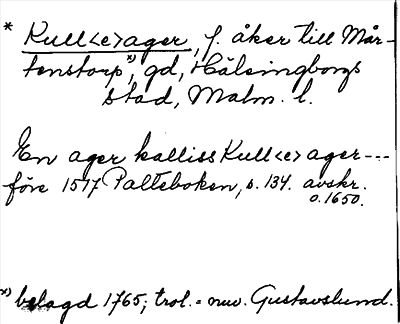 * Kull<e>ager, f. åker till Mår-
tenstorp*), gd, Hälsingborgs
stad, Malm. l.
En ager kalliss Kull<e>ager---
före 1517 Palteboken, s. 134. avskr.
o. 1650.
*) belagd 1765; trol. = nuv. Gustavslund.